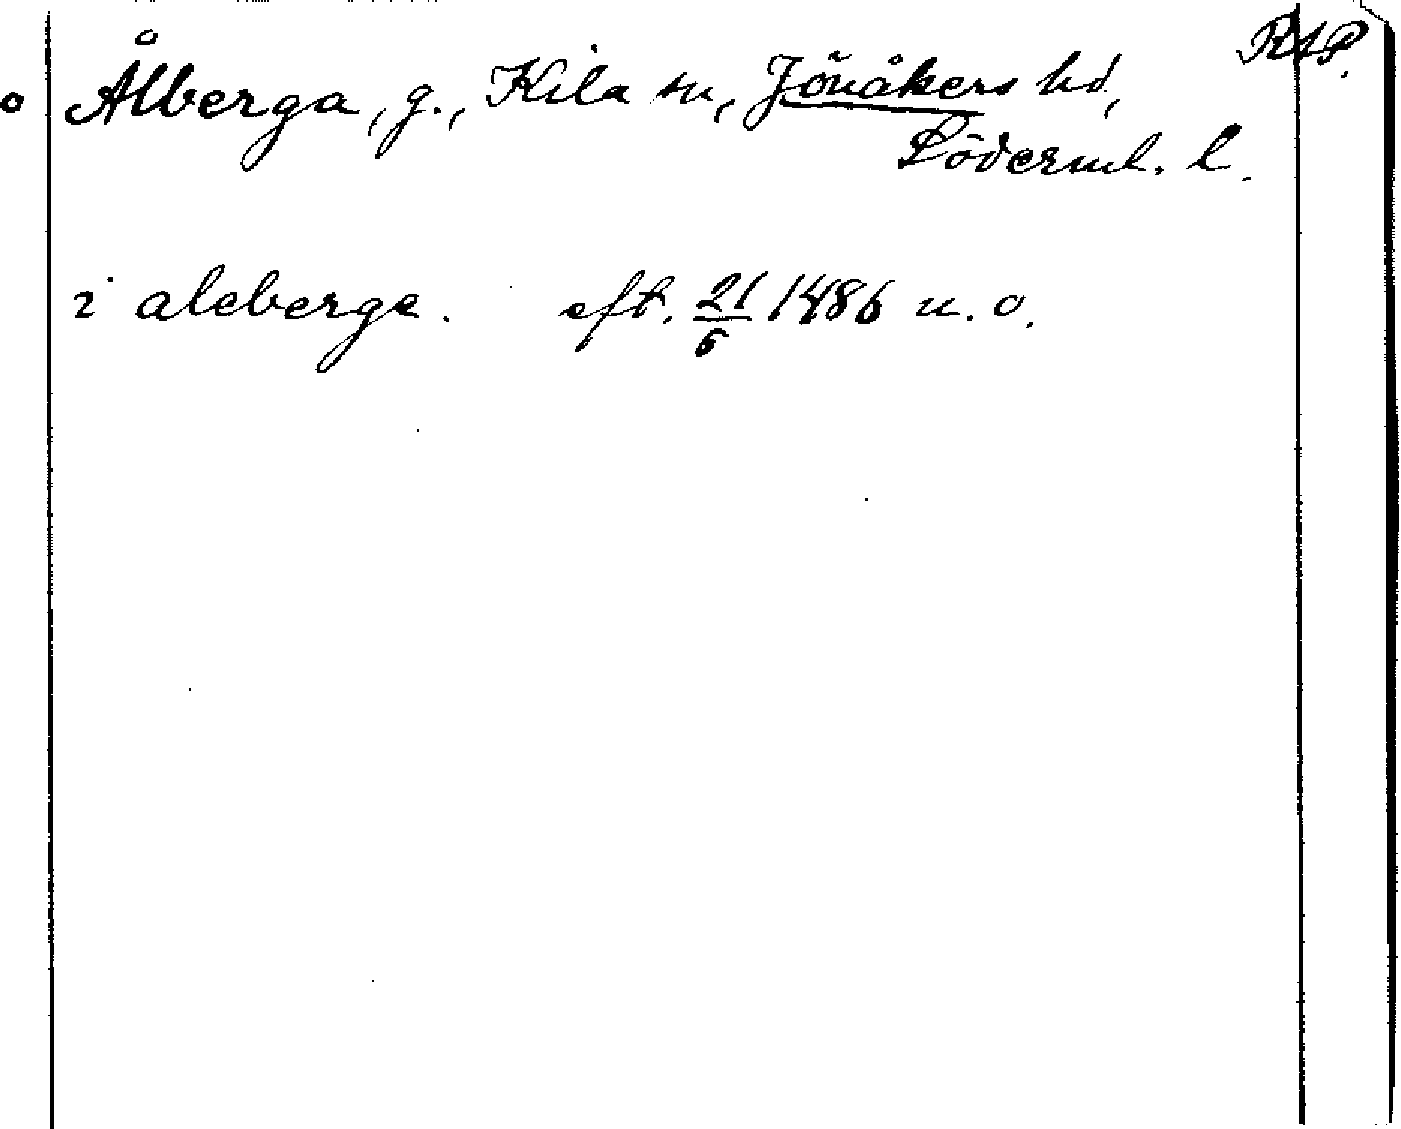 RAP.
Ålberga, g., Kila sn, Jönåkers hd,
Söderml. l.
i aleberge. eft. 21/5 1486 u. o.